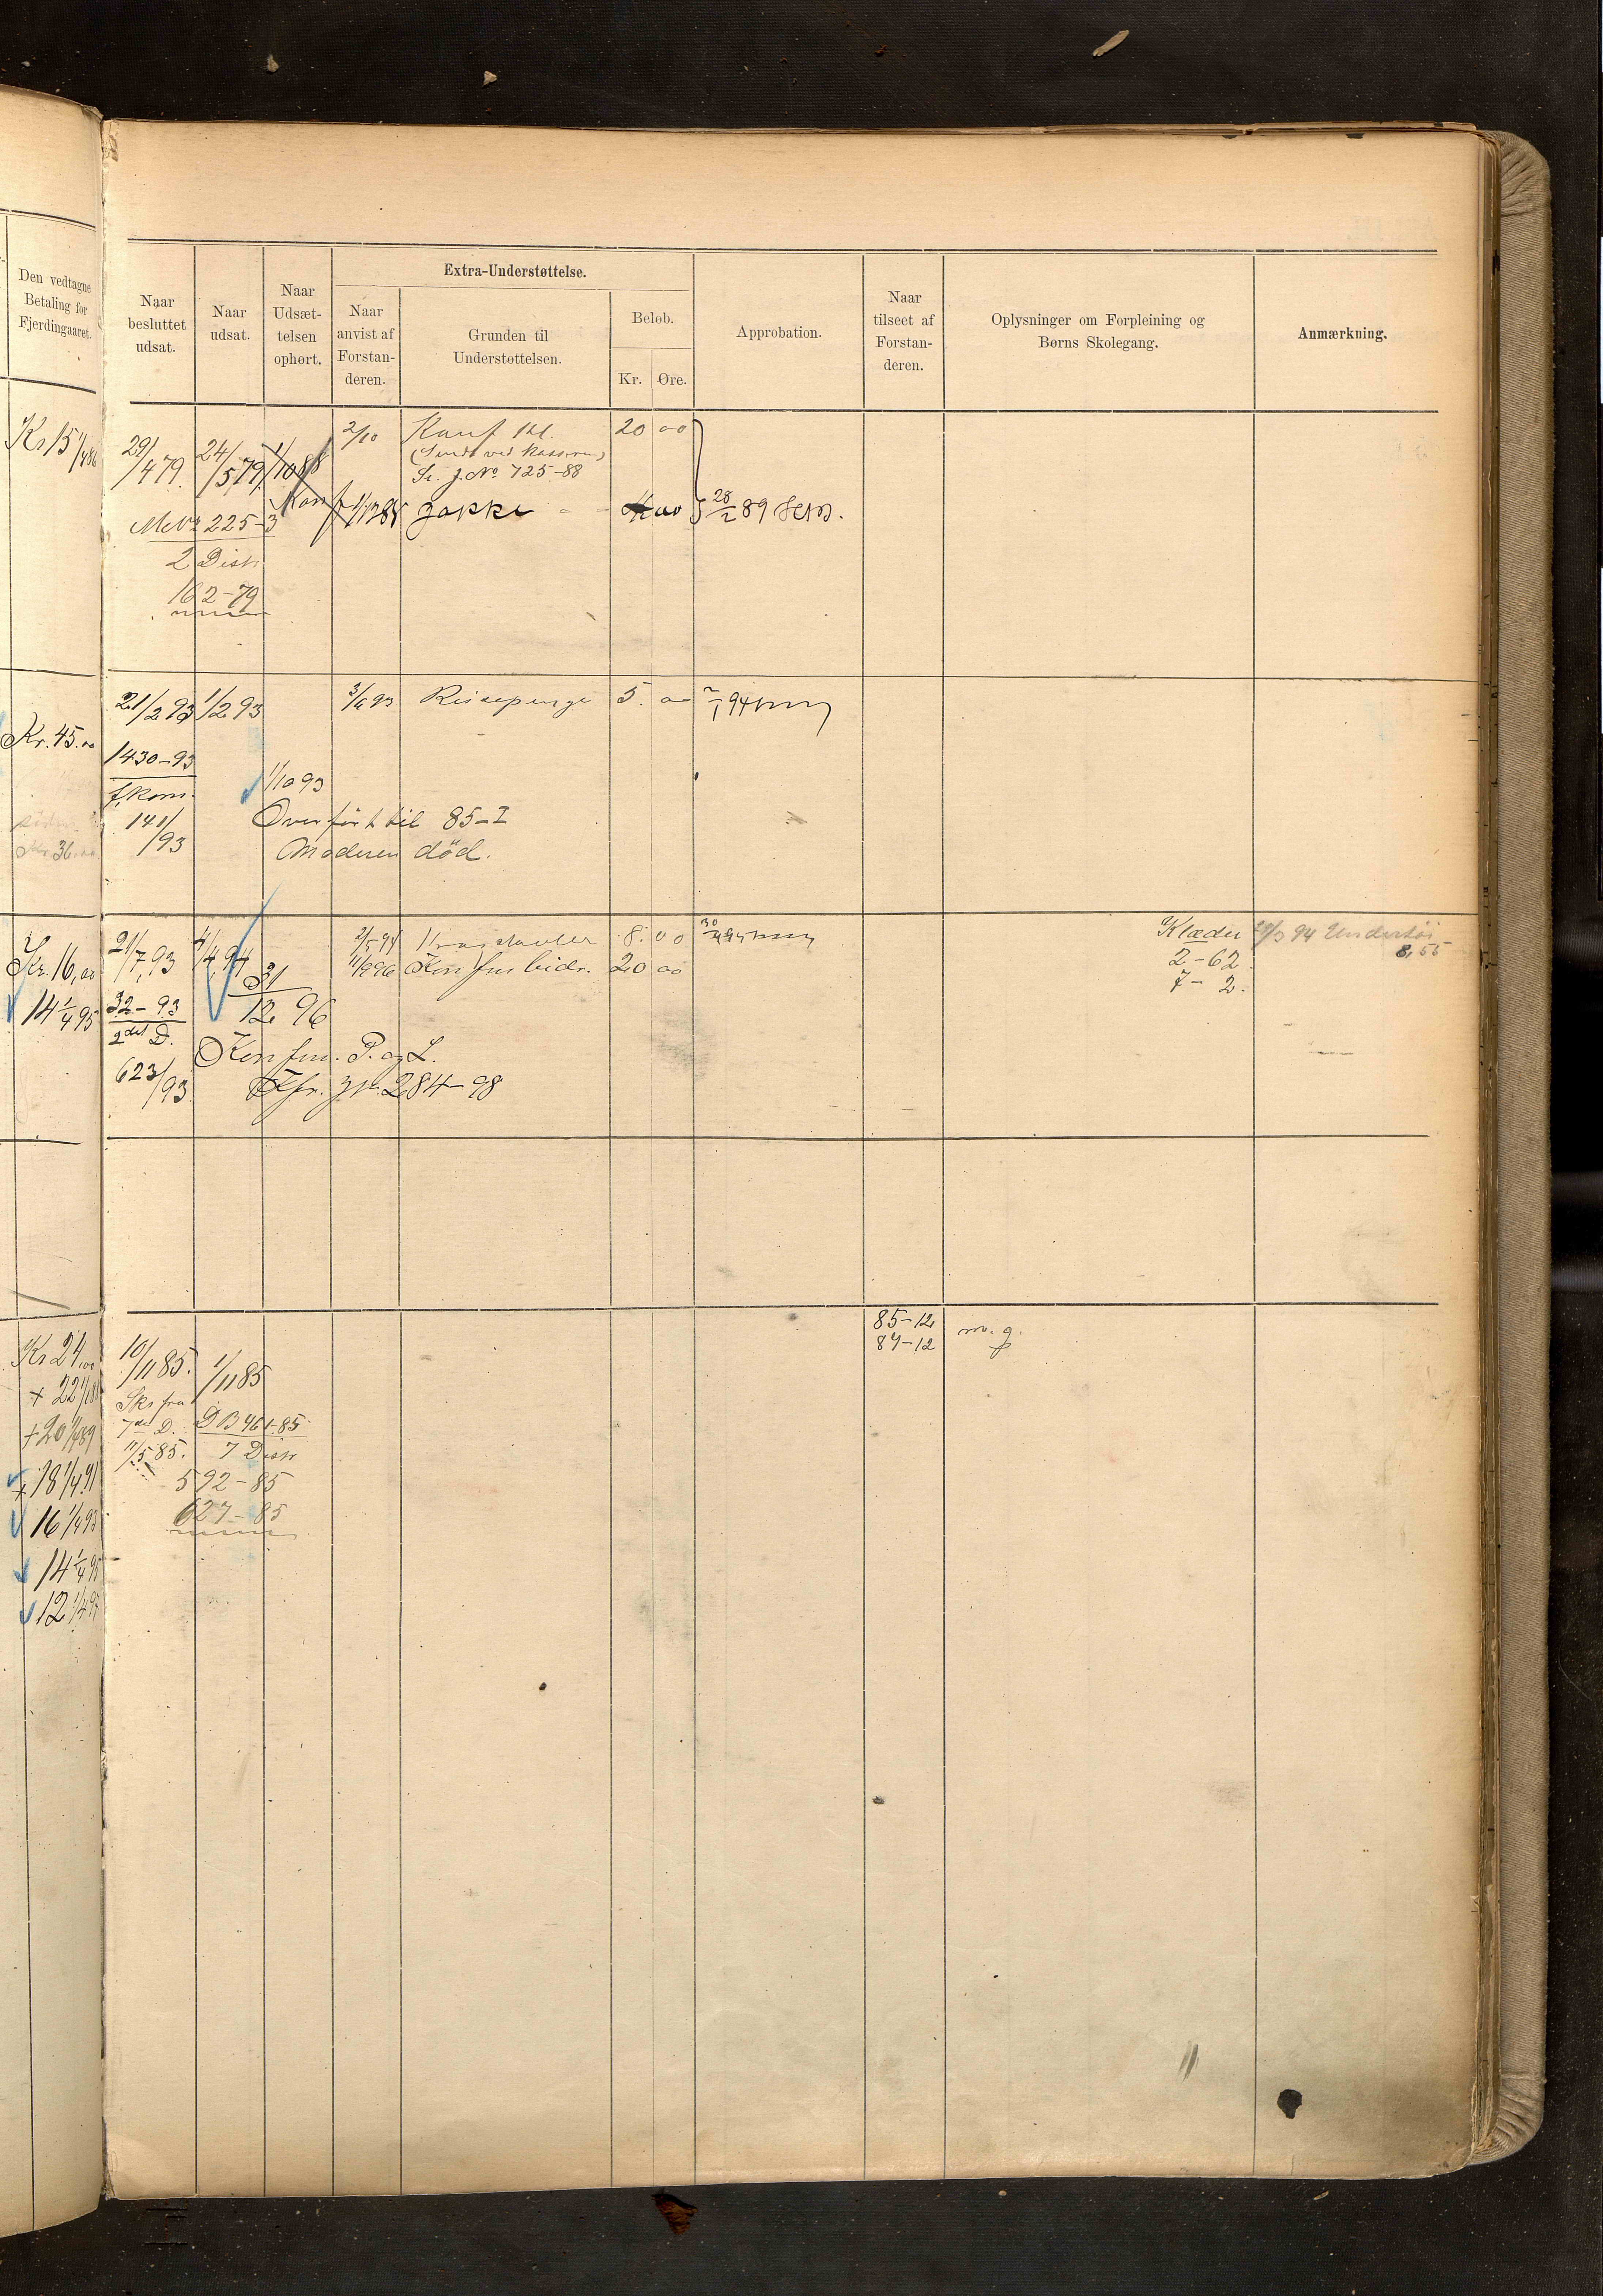 Den vedtagne
Betaling for
Fjerdingaaret.
Naar
besluttet
udsat.
Naar
udsat.
Naar
Udsæt-
telsen
ophørt.
Extra-Understøttelse.
Naar
anvist af
Forstan-
deren.
Grunden til
Understøttelsen.
Beløb.
Kr. Øre.
Approbation.
Naar
tilseet af
Forstan-
deren.
Oplysninger om Forpleining og
Børns Skolegang.
Anmærkning.
Kr 15 1/4 86
29/4 79. 24/5 79 1/10 88
2/10 Konf 20 00
Se. J. No. 725-88
Jakke
28/2 89
225-3
2 Distr
162-79
Kr. 45.00
Kr. 36.00
21/2 93 1/2 93 3/6 93 Reisepenge 5. 00
94
1430-93
f. kom.
141/93
1/10 93
Overført til 85-I
Moderen död.
Kr. 16,00
14 1/4 95
21/7,93 4/4,94
32-93
2det D.
623/93
31/12 96
2/5 94 8.00
Konfms bidr. 20 00
Konfm. P. og L.
Kfr. 284-98
Klæder
2-62.
7- 2.
94 Undertöi
8,55
Kr 24,00
+ 22
+ 20 1/4 89
+ 18 1/4 91
16 1/4 93
14 1/4 95
12
10/11 85. 1/11 85
Sks fra
7de D.
11/5 85.
DB 461-85
7 Distr
592-85
627-85
85-12 m. g.
87-12